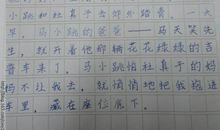 小跳和杜真子去郊外踏青。一大
早，马小跳的爸爸——马天笑先
生，就开着他那辆花花绿绿的吉
普车来了。马小跳怕杜真子的妈
妈不让我去，就悄悄地把我抱进
车里，藏在座位底下。